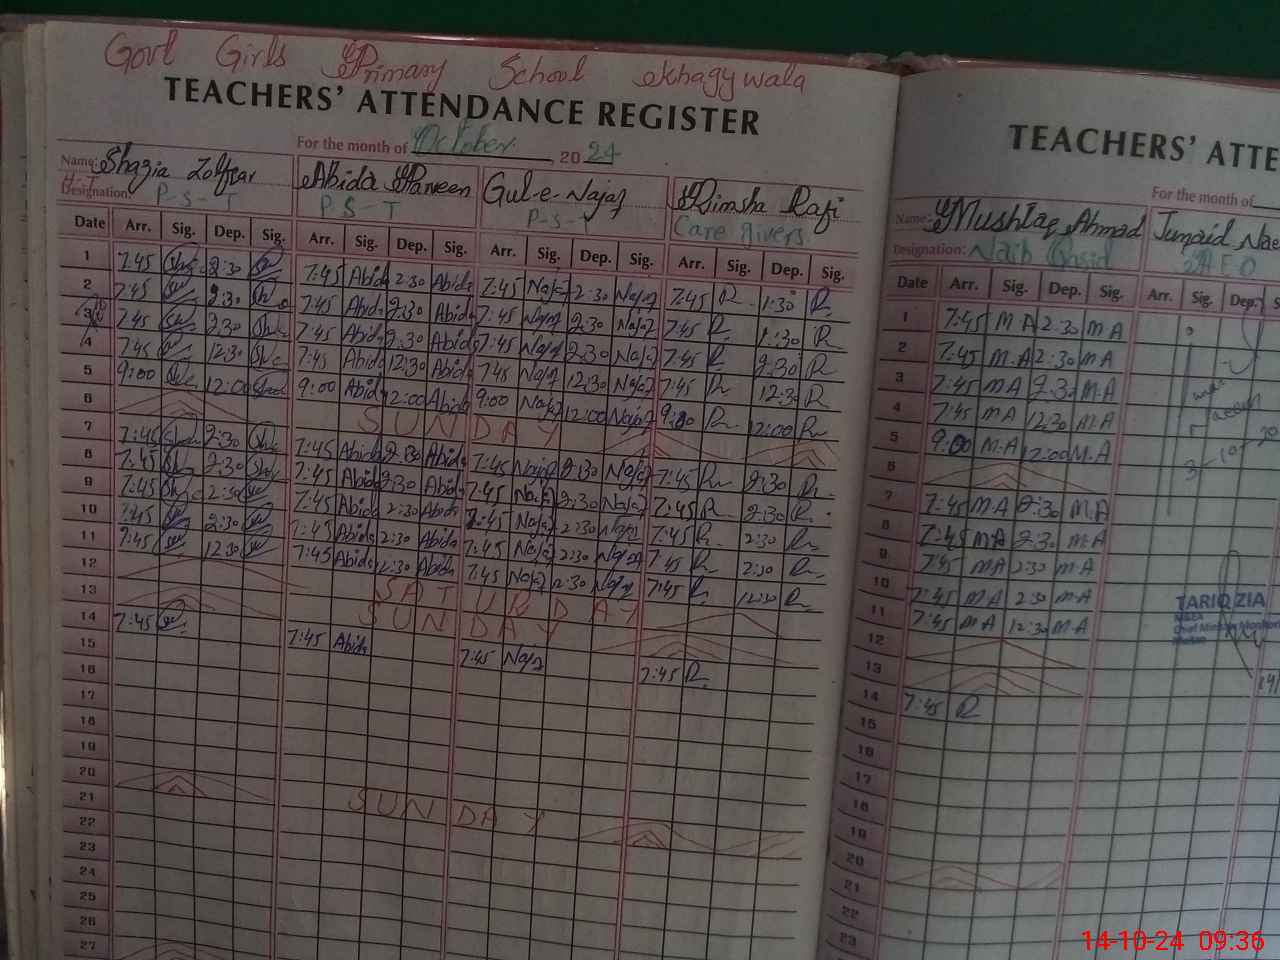 Govt Girls Primary School Khagywala
TEACHERS' ATTENDANCE REGISTER
For the month of October, 2024
Name: Shazia Zolfqar
Abida Parveen
Gul-e-Najaf
Rimsha Rafi
Designation: P-S-T
P S T
P-S-T
Care Givers
Date Arr. Sig. Dep. Sig. Arr. Sig. Dep. Sig. Arr. Sig. Dep. Sig. Arr. Sig. Dep. Sig.
1 7:45 2:30 7:45 Abida 2:30 Abida 7:45 Najaf 2:30 Najaf 7:45 R 1:30 R
2 7:45 2:30 7:45 Abida 2:30 Abida 7:45 Najaf 2:30 Najaf 7:45 R 1:30 R
3 7:45 2:30 7:45 Abida 2:30 Abida 7:45 Najaf 2:30 Najaf 7:45 R 2:30 R
4 7:45 12:30 7:45 Abida 12:30 Abida 7:45 Najaf 12:30 Najaf 7:45 R 12:30 R
5 9:00 12:00 9:00 Abida 12:00 Abida 9:00 Najaf 12:00 Najaf 9:00 R 12:00 R
6 SUNDAY
7 7:45 2:30 7:45 Abida 2:30 Abida 7:45 Najaf 2:30 Najaf 7:45 R 2:30 R
8 7:45 2:30 7:45 Abida 2:30 Abida 7:45 Najaf 2:30 Najaf 7:45 R 2:30 R
9 7:45 2:30 7:45 Abida 2:30 Abida 7:45 Najaf 2:30 Najaf 7:45 R 2:30 R
10 7:45 2:30 7:45 Abida 2:30 Abida 7:45 Najaf 2:30 Najaf 7:45 R 2:30 R
11 7:45 12:30 7:45 Abida 12:30 Abida 7:45 Najaf 12:30 Najaf 7:45 R 12:30 R
12 SATURDAY
13 SUNDAY
14 7:45 7:45 Abida 7:45 Najaf 7:45 R
15
16
17
18
19
20 SUNDAY
21
22
23
24
25
26
27
TEACHERS' ATTE
For the month of
Name: Mushtaq Ahmad
Junaid Nae
Designation: Naib Qasid
AEO
Date Arr. Sig. Dep. Sig. Arr. Sig. Dep. S
1 7:45 M A 2:30 M A
2 7:45 M.A 2:30 M A
3 7:45 M A 2:30 M.A
4 7:45 M A 12:30 M A
5 9:00 M.A 12:00 M.A
6
7 7:45 M.A 2:30 M.A
8 7:45 M A 2:30 M.A
9 7:45 M A 2:30 M.A
10 7:45 M A 2:30 M.A
11 7:45 M A 12:30 M.A
12
13
14 7:45 R
15
16
17
18
19
20
21
22
23
TARIQ ZIA
14-10-24 09:36